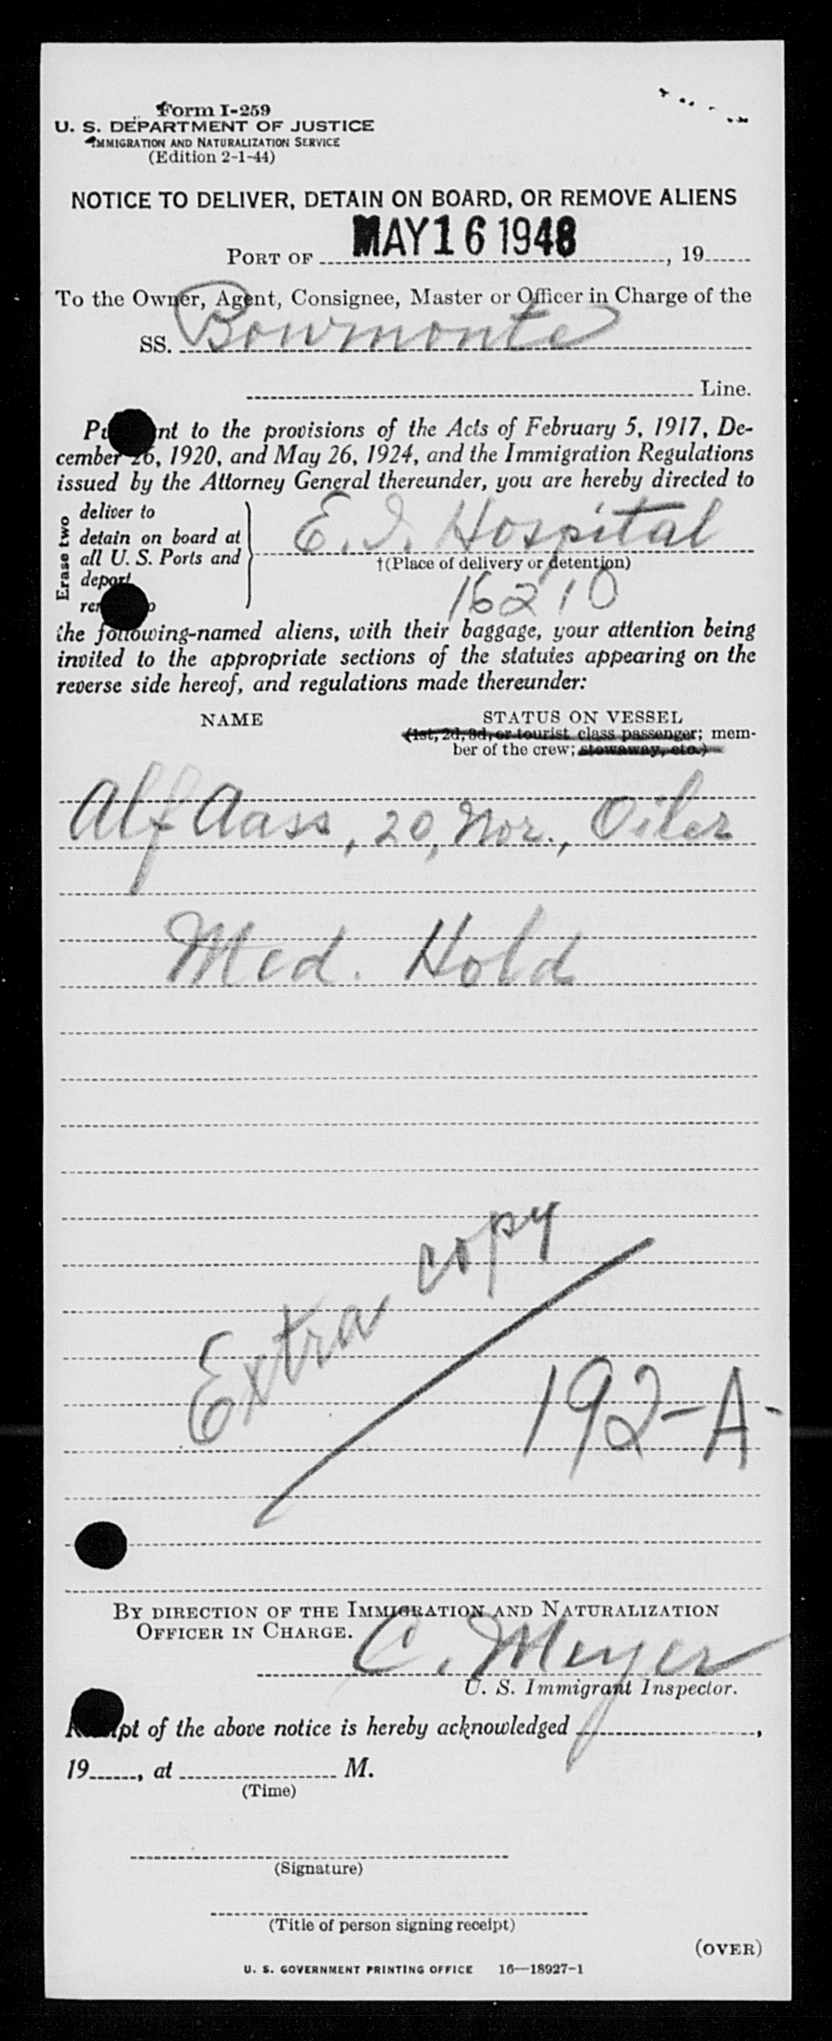 Form I-259
U. S. DEPARTMENT OF JUSTICE
IMMIGRATION AND NATURALIZATION SERVICE
(Edition 2-1-44)
NOTICE TO DELIVER, DETAIN ON BOARD, OR REMOVE ALIENS
PORT OF MAY 16 1948, 19
To the Owner, Agent, Consignee, Master or Officer in Charge of the
SS. Bowmonte
Line.
Pu nt to the provisions of the Acts of February 5, 1917, De-
cember 26, 1920, and May 26, 1924, and the Immigration Regulations
issued by the Attorney General thereunder, you are hereby directed to
Erase two
deliver to
detain on board at
all U. S. Ports and
deport
E. I. Hospital
†(Place of delivery or detention)
16210
the following-named aliens, with their baggage, your attention being
invited to the appropriate sections of the statutes appearing on the
reverse side hereof, and regulations made thereunder:
NAME STATUS ON VESSEL
(1st, 2d, 3d, or tourist class passenger; mem-
ber of the crew; stowaway, etc.)
Alf Aass, 20, Nor., Oiler
Med. Hold
Extra copy
192-A-
BY DIRECTION OF THE IMMIGRATION AND NATURALIZATION
OFFICER IN CHARGE.
C. Meyer
U. S. Immigrant Inspector.
Receipt of the above notice is hereby acknowledged ,
19 , at M.
(Time)
(Signature)
(Title of person signing receipt)
(OVER)
U. S. GOVERNMENT PRINTING OFFICE 16—18927-1